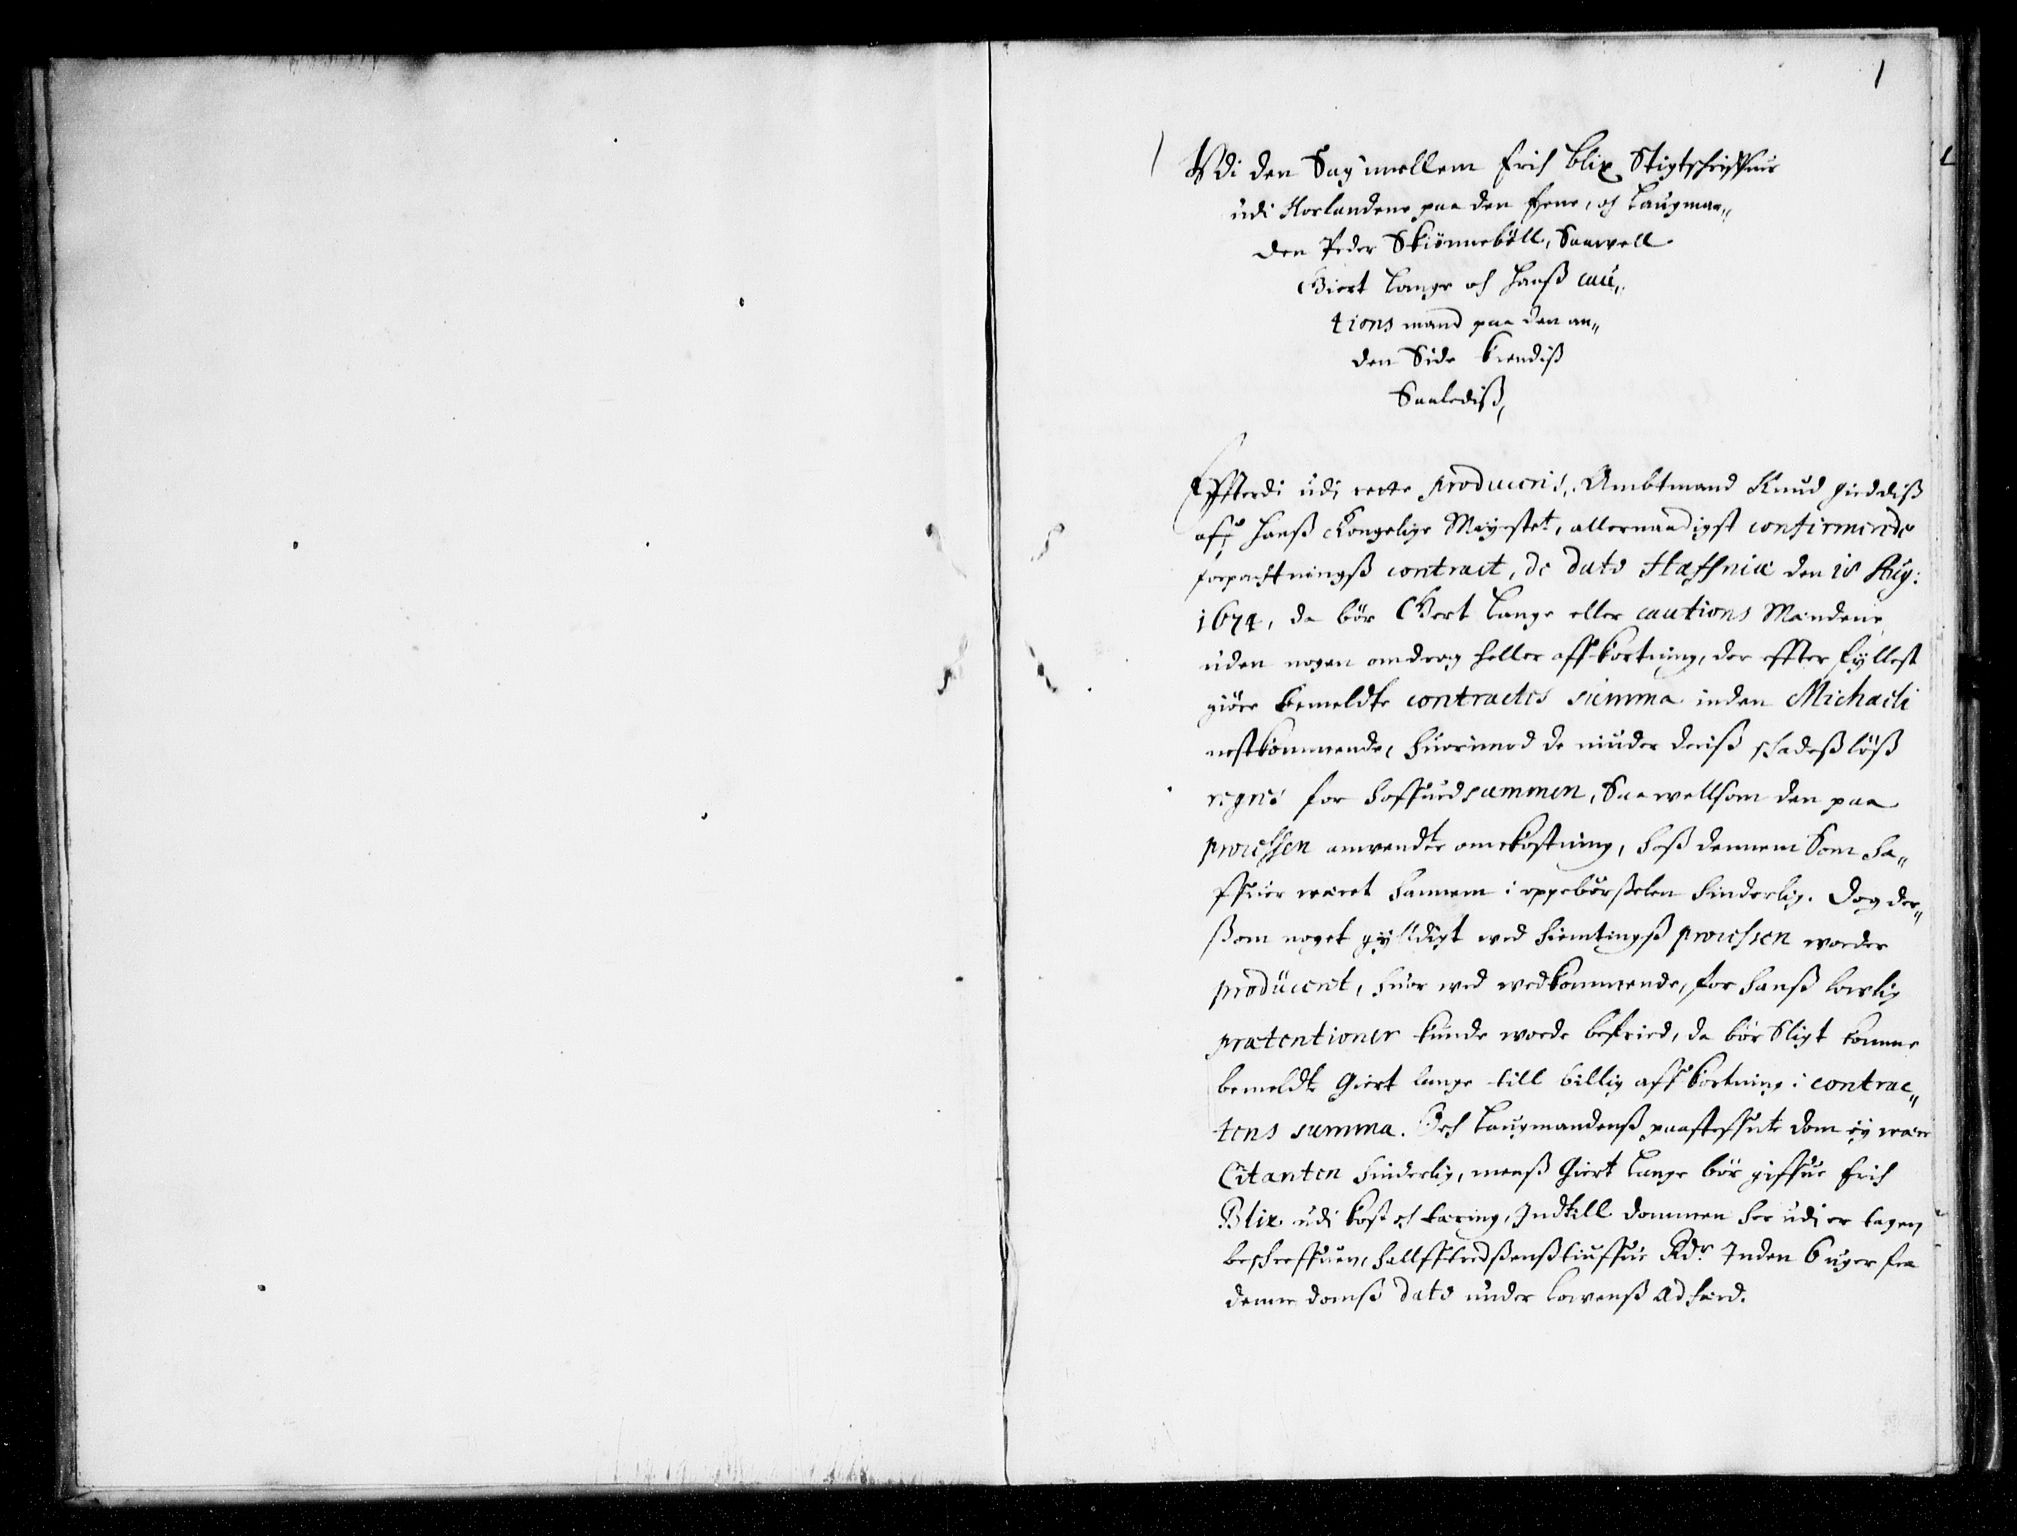 1
Vdi den Sag imellem Erich Blix Stigtschriffuer
udi Norlandene paa den Eene, och Laugman„
den Peder Skiönnebøll, Saawell
Giert Lange och hanß cau„
tions mand paa den an„
den Side kiendiß
Saalediß,
Effterdi udi rette produceris, Ambtmand Knud Gieddiß
aff hanß Kongelige Mayestet, allernaadigst confirmerede
forpachtningß contract, de dato Haffniæ den 18 Aug:
1674, da bör Giert Lange eller cautions Mandene
uden nogen omdrag heller affkortning, der effter fyllest
giöre bemeldte contractes summa inden Michaeli
nestkommende, huorimod de niuder deriß schadeßlöß
regres for hoffuedsummen, Saawellsom den paa
processen anwendte omkostning, hoß dennem Som ha„
ffuer wæret hannem i oppebørßelen hinderlig. Dog der„
ßom noget gylldigt wed hiemtingß processen worder
producerit, huor wed wedkommende, for hanß lowlig
prætentioner kunde worde befried, da bör Sligt komme
bemeldte Giert Lange till billig affkortning i contrac„
tens summa. Och Laugmandenß paasteffnte dom ey være
Citanten hinderlig, menß Giert Lange bör giffue Erich
Blix udi kost och tæring, Indtill dommen her udi er tagen
beschreffuen, hallfftredßenßtiuffue Rdr. Inden 6 uger fra
denne domß dato under lowenß adfærd.